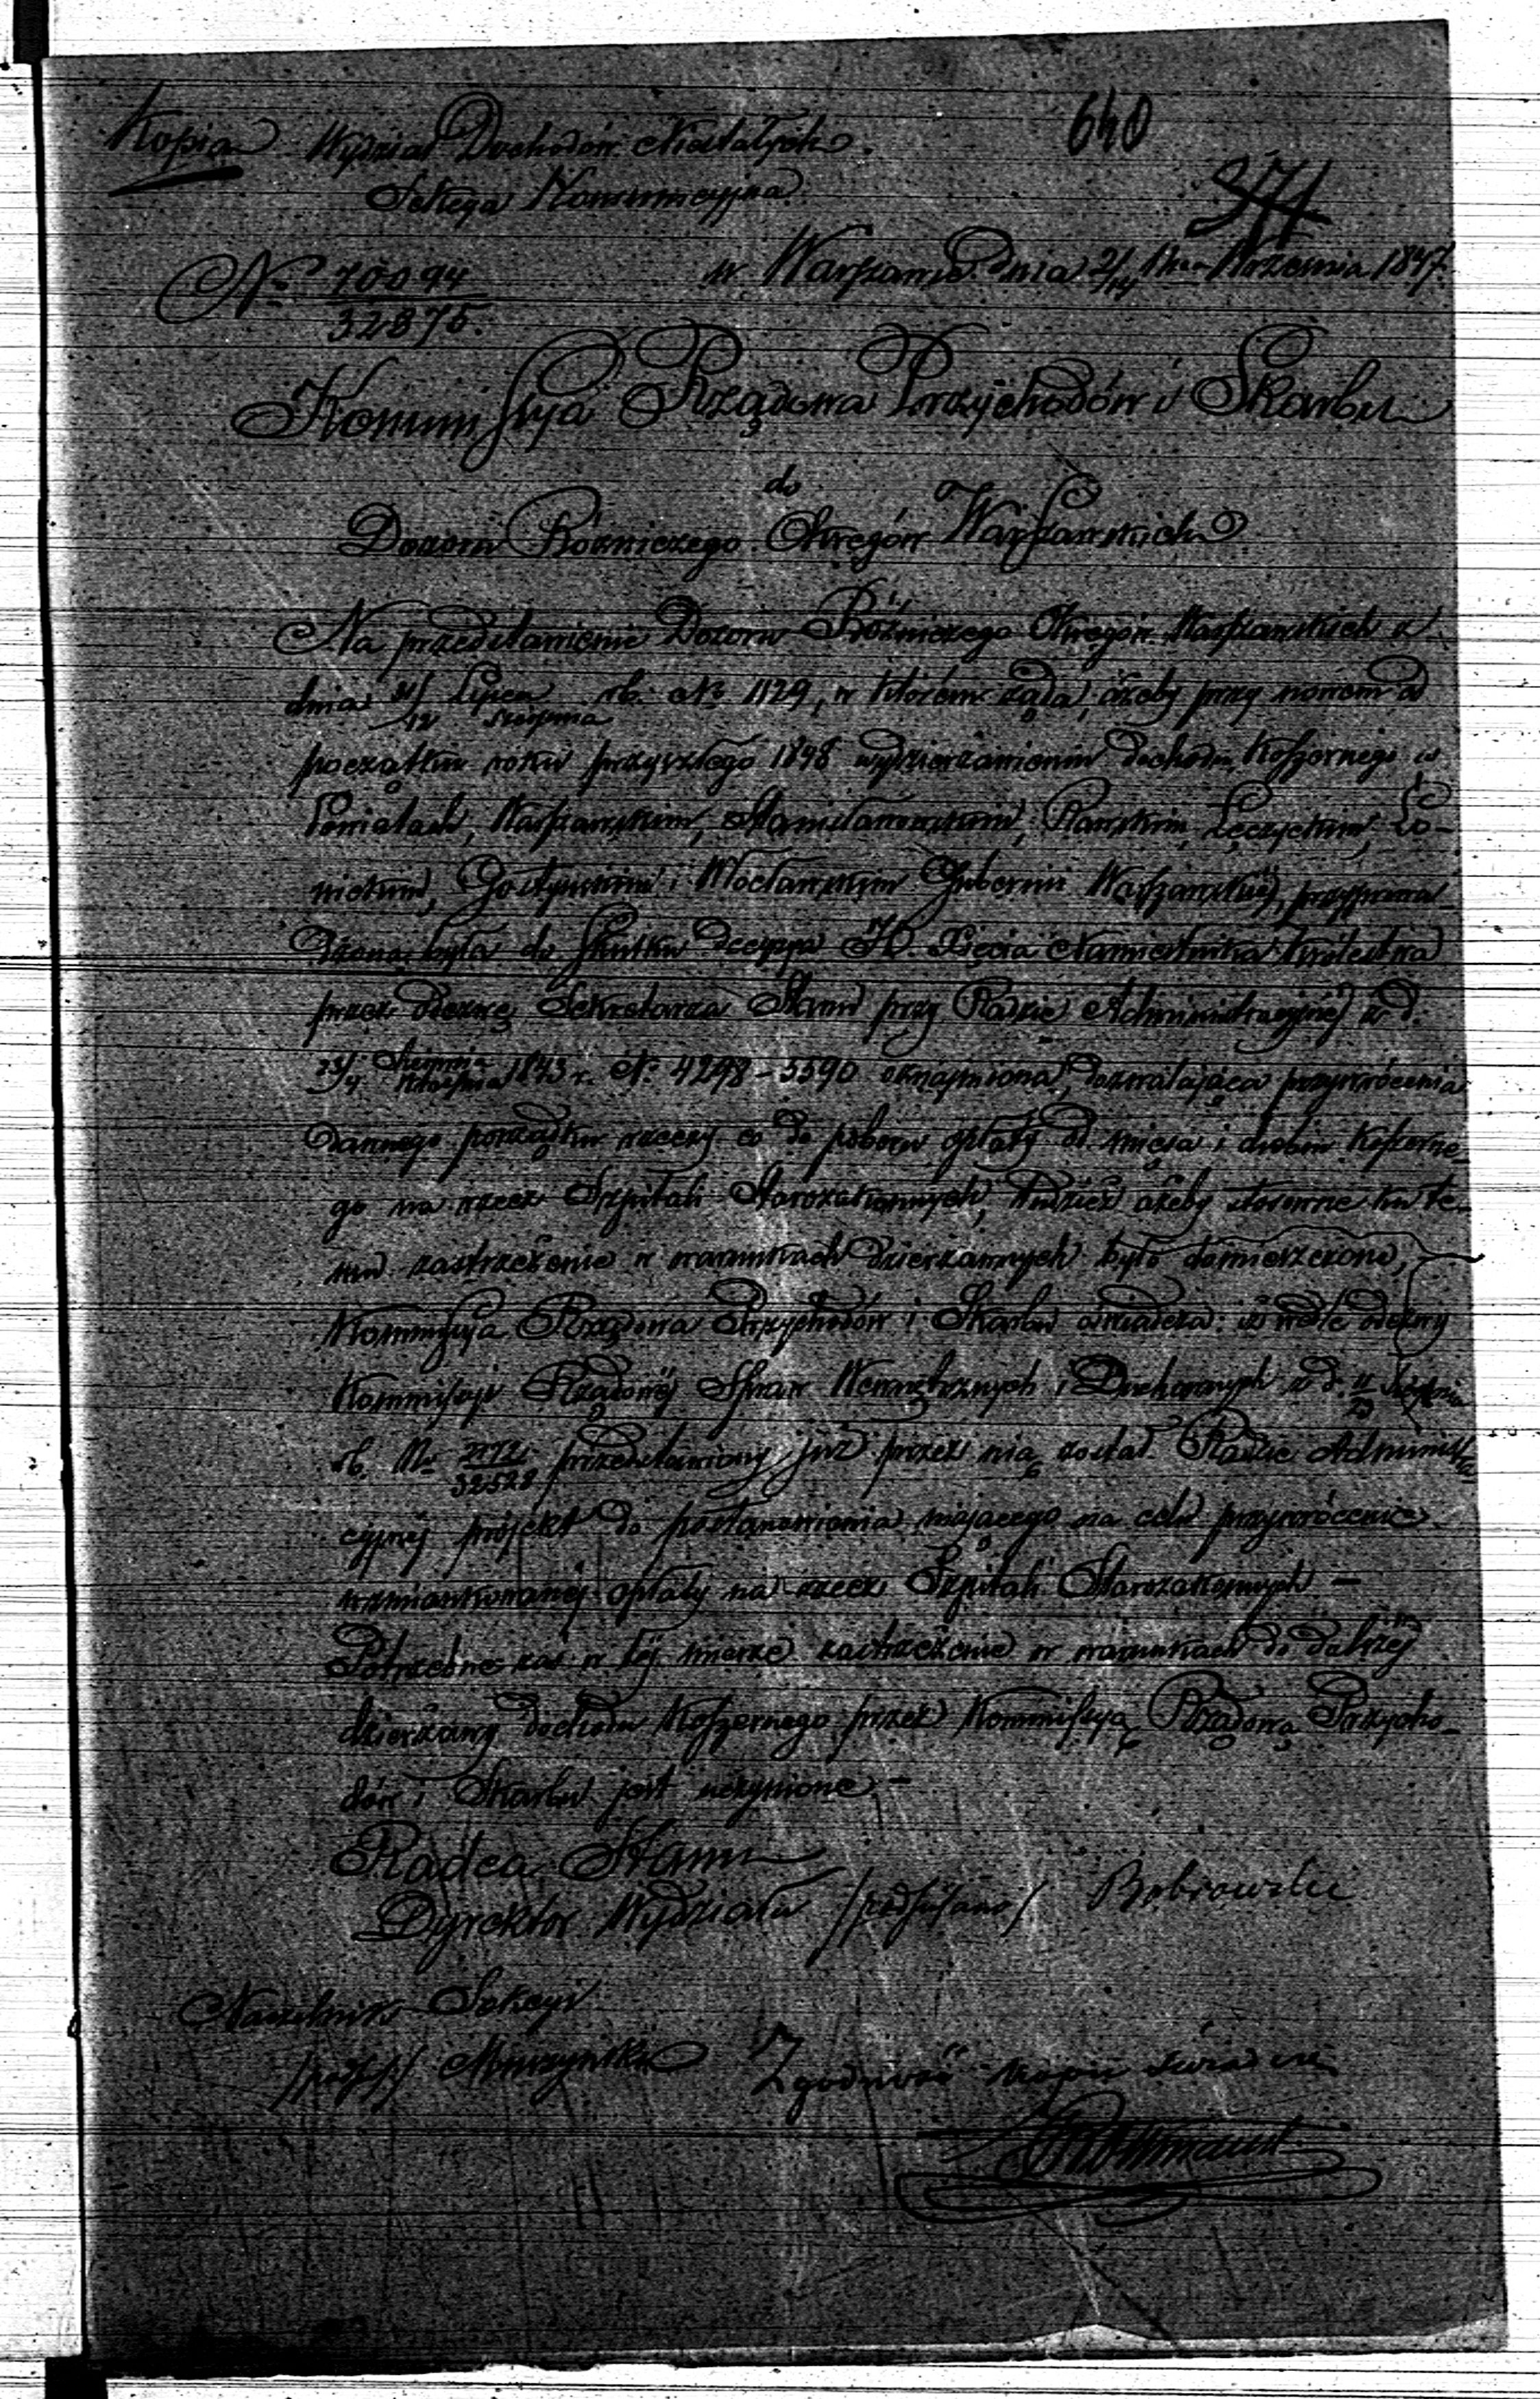 640
Kopia Wydział Dochodów Niestałych.
Sekcya Konsumcyjna
371
w Warszawie dnia 2/14 Września 1847.
No 70094
32875.
Kommissya Rządowa Przychodów i Skarbu
do
Dozoru Bóżniczego Okręgów Warszawskich
Na przedstawienie Dozoru Bóżniczego Okręgów Warszawskich z
dnia 31/12 Lipca Sierpnia rb. No 1129, w którém żąda, ażeby przy nowém od
początku roku przyszłego 1848 wydzierżawieniu dochodu koszernego w
Powiatach, Warszawskim, Stanisławowskim, Rawskim, Łęczyckim, Ło-
wickim, Gostyńskim i Włocławskim Gubernii Warszawskiéj, przyprowa-
dzoną była do skutku decyzya JO. Xięcia Namiestnika Królestwa
przez odezwę Sekretarza Stanu przy Radzie Administracyjnéj z d.
Sierpnia Września 1843 r. No 4298-5590 oznajmiona, dozwalająca przywrócenia
dawnego porządku rzeczy co do poboru opłaty od mięsa i drobiu koszerne-
go na rzecz Szpitali Starozakonnych, tudzież ażeby stosowne ku te-
mu zastrzeżenie w warunkach dzierżawnych było domieszczone,
Kommissya Rządowa Przychodów i Skarbu oświadcza: iż wedle odezwy
Kommissyi Rządowéj Spraw Wewnętrznych i Duchownych z d. 11/23 Sierpnia
rb. No 32528 przedstawiony już przez nią został Radzie Administra
cyjnéj projekt do postanowienia mającego na celu przywrócenie
wzmiankowanéj opłaty na rzecz Szpitali Starozakonnych —
Potrzebne zaś w téj mierze zastrzeżenie w warunkach do dalszéj
dzierżawy dochodu koszernego przez Kommissyą Rządową Przycho-
dów i Skarbu jest uczynione. —
Radca Stanu
Dyrektor Wydziału /podpisano/ Bobrowski
Naczelnik Sekcyi
/podp:/
Zgodność kopii świadczę